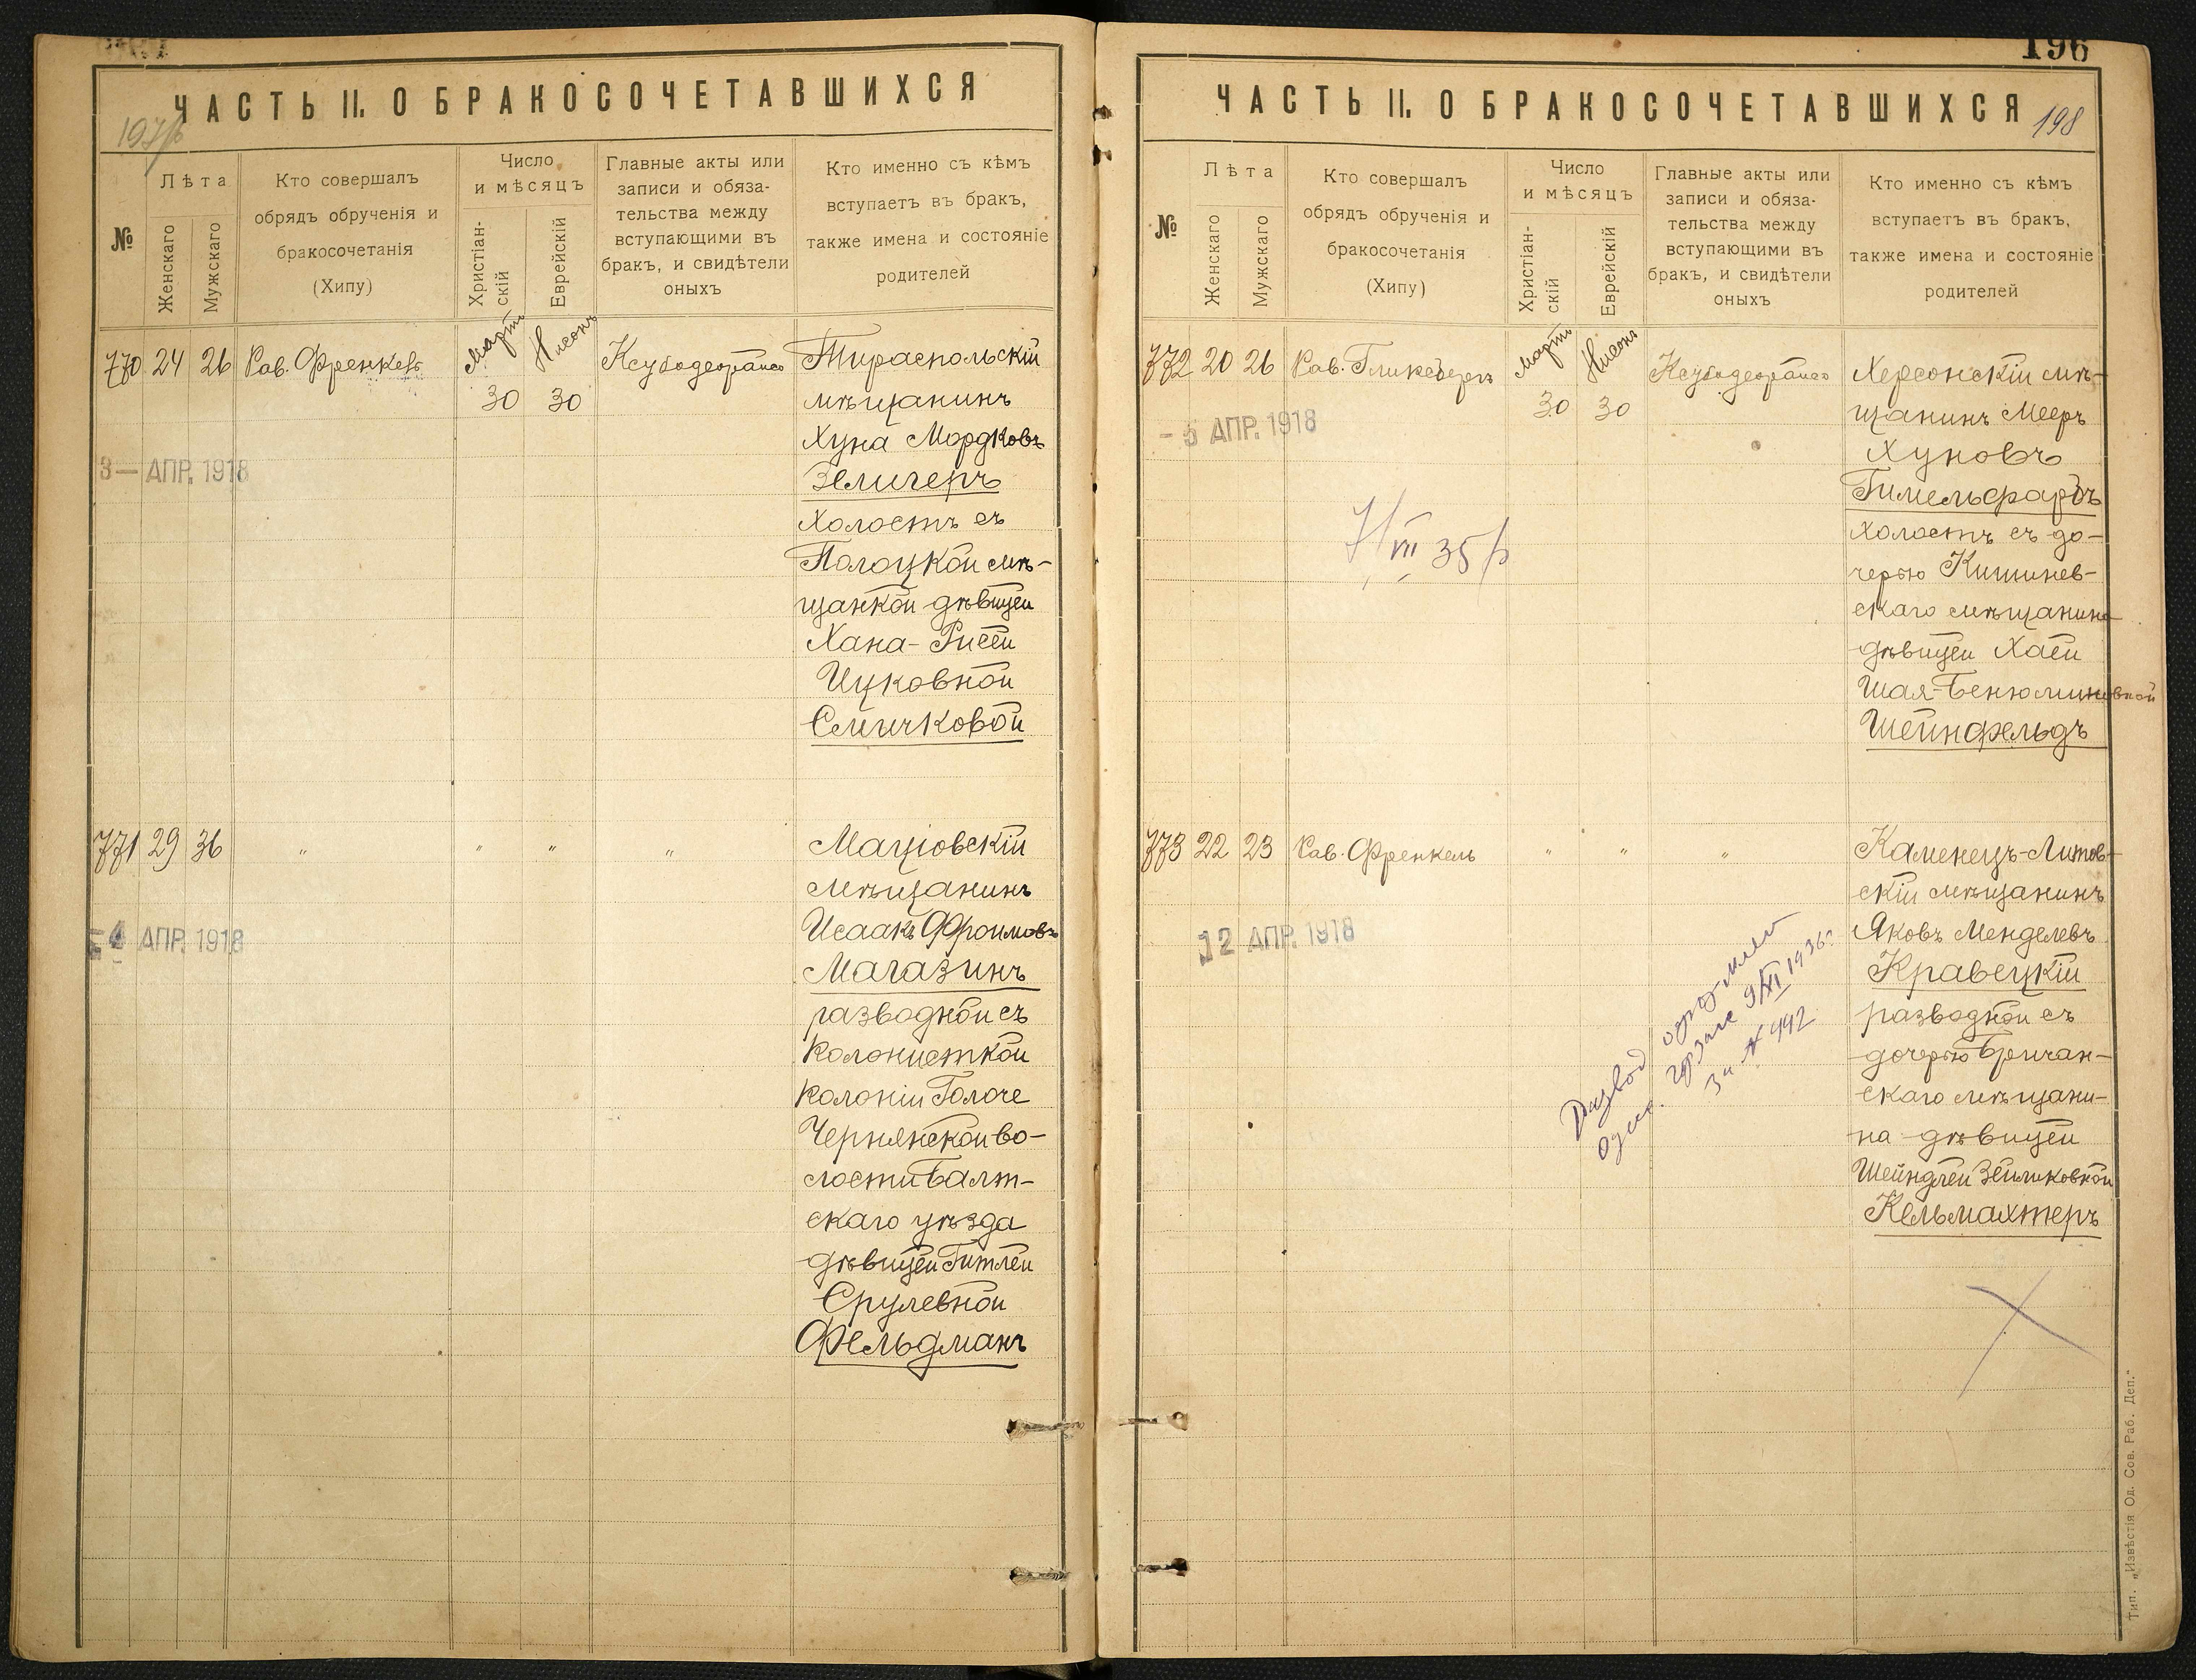 ЧАСТЬ II. О БРАКОСОЧЕТАВШИХСЯ
№
Лѣта
Женскаго
Мужскаго
Кто совершалъ
обрядъ обрученія и
бракосочетанія
(Хипу)
Число
и мѣсяцъ
Христіан-
скій
Еврейскій
Главные акты или
записи и обяза-
тельства между
вступающими въ
бракъ, и свидѣтели
оныхъ
Кто именно съ кѣмъ
вступаетъ въ бракъ,
также имена и состояніе
родителей
770 24 26 Рав. Френкель
Мартъ
30
Нисонъ
30
Тираспольскій
мѣщанинъ
Хуна Мордковъ
Зелигеръ
холостъ съ
Полоцкой мѣ-
щанкой дѣвицей
Хана-Рисей
Ицковной
Смычковой
3 — АПР. 1918
771 29 36 " " " "
Маціовскій
мѣщанинъ
Исаакъ Фроимовъ
Магазинъ
разводной съ
колонисткой
колоніи Голоче
Чернянской во-
лости Балт-
скаго уѣзда
дѣвицей Гитлей
Срулевной
Фельдманъ
4 АПР. 1918
196
ЧАСТЬ II. О БРАКОСОЧЕТАВШИХСЯ
198
№
Лѣта
Женскаго
Мужскаго
Кто совершалъ
обрядъ обрученія и
бракосочетанія
(Хипу)
Число
и мѣсяцъ
Христіан-
скій
Еврейскій
Главные акты или
записи и обяза-
тельства между
вступающими въ
бракъ, и свидѣтели
оныхъ
Кто именно съ кѣмъ
вступаетъ въ бракъ,
также имена и состояніе
родителей
772 20 26 Рав. Гликсбергъ
Мартъ
30
Нисонъ
30
Херсонскій мѣ-
щанинъ Мееръ
Хуновъ
Гимельфарбъ
холостъ съ до-
черью Кишинев-
скаго мѣщанина
дѣвицей Хаей
Шая-Бенюминовной
Шейнфельдъ
- 5 АПР. 1918
VII 35
773 22 23 Рав. Френкель " " "
Каменецъ-Литов-
скій мѣщанинъ
Яковъ Менделевъ
Кравецкій
разводной съ
дочерью Бричан-
скаго мѣщани-
на дѣвицей
Шейндлей Зейликовной
Кельмахтеръ
12 АПР. 1918
Развод оформлен
Одес. горзагс 9/XI 1936г
за № 992
Тип. „Извѣстія Од. Сов. Раб. Деп."